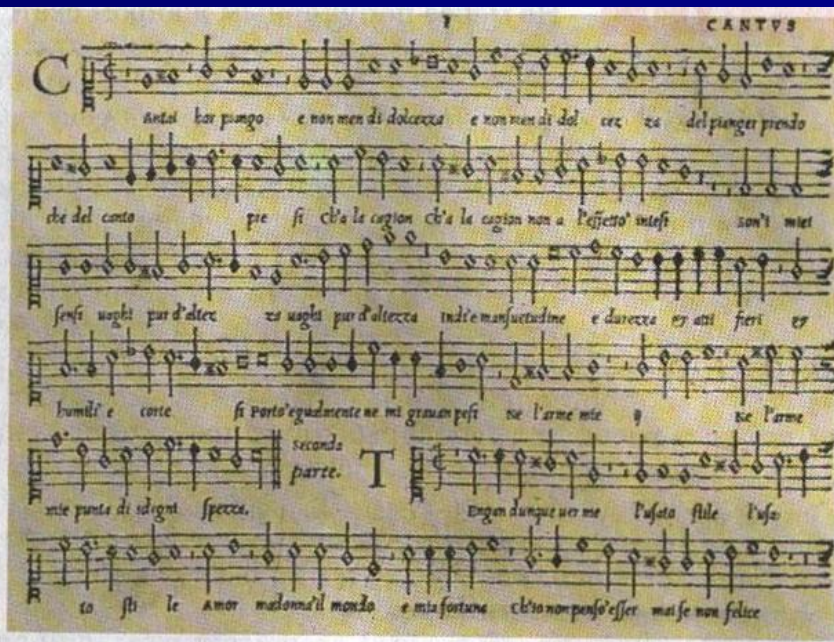 1 CANTVS
C Antai hor piango e non men di dolcezza e non men di dol cez za del pianger prendo
che del canto pre si ch'a la cagion ch'a la cagion non a l'effetto' intesi son'i miei
sensi uaghi pur d'altez za uaghi pur d'altezza indi'e mansuetudine e durezza et atti fieri et
humili' e corte si porto'egualmente ne mi grauan pesi Ne l'arme mie ij Ne l'arme
mie punta di sdegni spezza. seconda parte. T Engan dunque uer me l'usato stile l'usa
to sti le Amor madonna'il mondo e mia fortuna ch'io non penso'esser mai se non felice